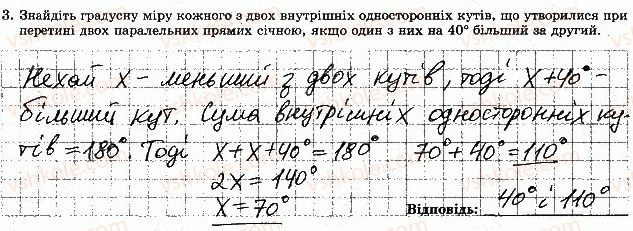 3. Знайдіть градусну міру кожного з двох внутрішніх односторонніх кутів, що утворилися при
перетині двох паралельних прямих січною, якщо один з них на 40° більший за другий.
Нехай х - менший з двох кутів, тоді х+40° -
більший кут. Сума внутрішніх односторонніх ку-
тів =180°. Тоді х+х+40°=180° 70°+40°=110°
2х=140°
х=70°
Відповідь: 40° і 110°